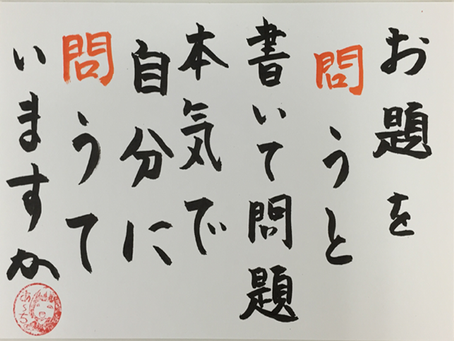 お題を
問うと
書いて問題
本気で
自分に
問うて
いますか